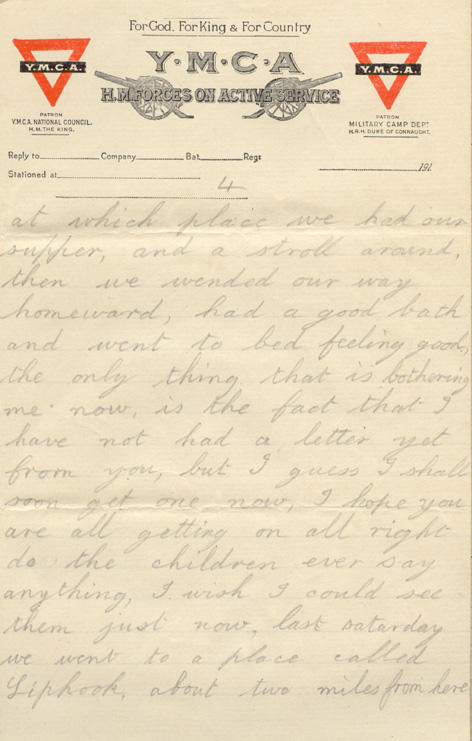 For God, For King & For Country
Y·M·C·A
H.M. FORCES ON ACTIVE SERVICE
Y.M.C.A.
PATRON
Y.M.C.A. NATIONAL COUNCIL.
H.M. THE KING.
Y.M.C.A.
PATRON
MILITARY CAMP DEPT
H.R.H. DUKE OF CONNAUGHT.
Reply to Company Bat. Regt
191
Stationed at
4
at which place we had our
supper, and a stroll around,
then we wended our way
homeward, had a good bath
and went to bed feeling good,
the only thing that is bothering
me now, is the fact that I
have not had a letter yet
from you, but I guess I shall
soon get one now, I hope you
are all getting on all right
do the children ever say
anything, I wish I could see
them just now, last saturday
we went to a place called
Liphook, about two miles from here